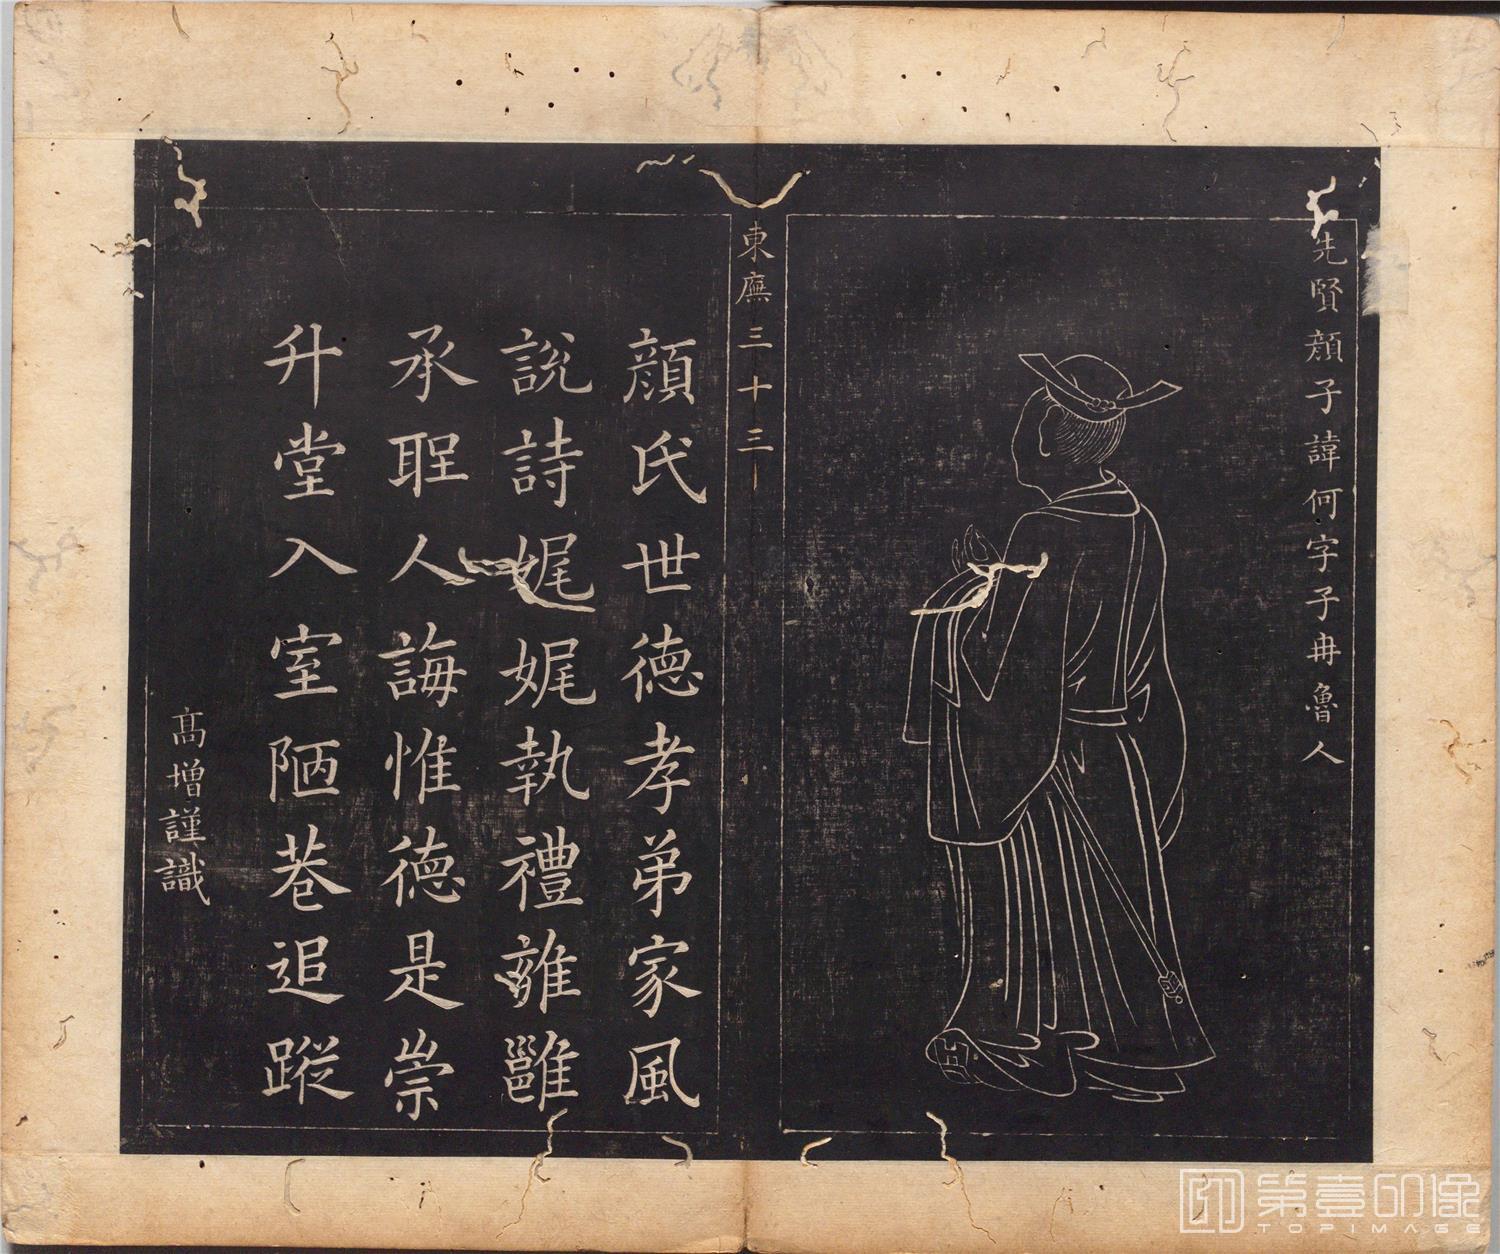 先賢顔子諱何字子冉魯人
東廡三十三
顔氏世德孝弟家風
說詩娓娓執禮雝雝
承聖人誨惟德是崇
升堂入室陋巷追蹤
髙增謹識
第壹印像
TOPIMAGE